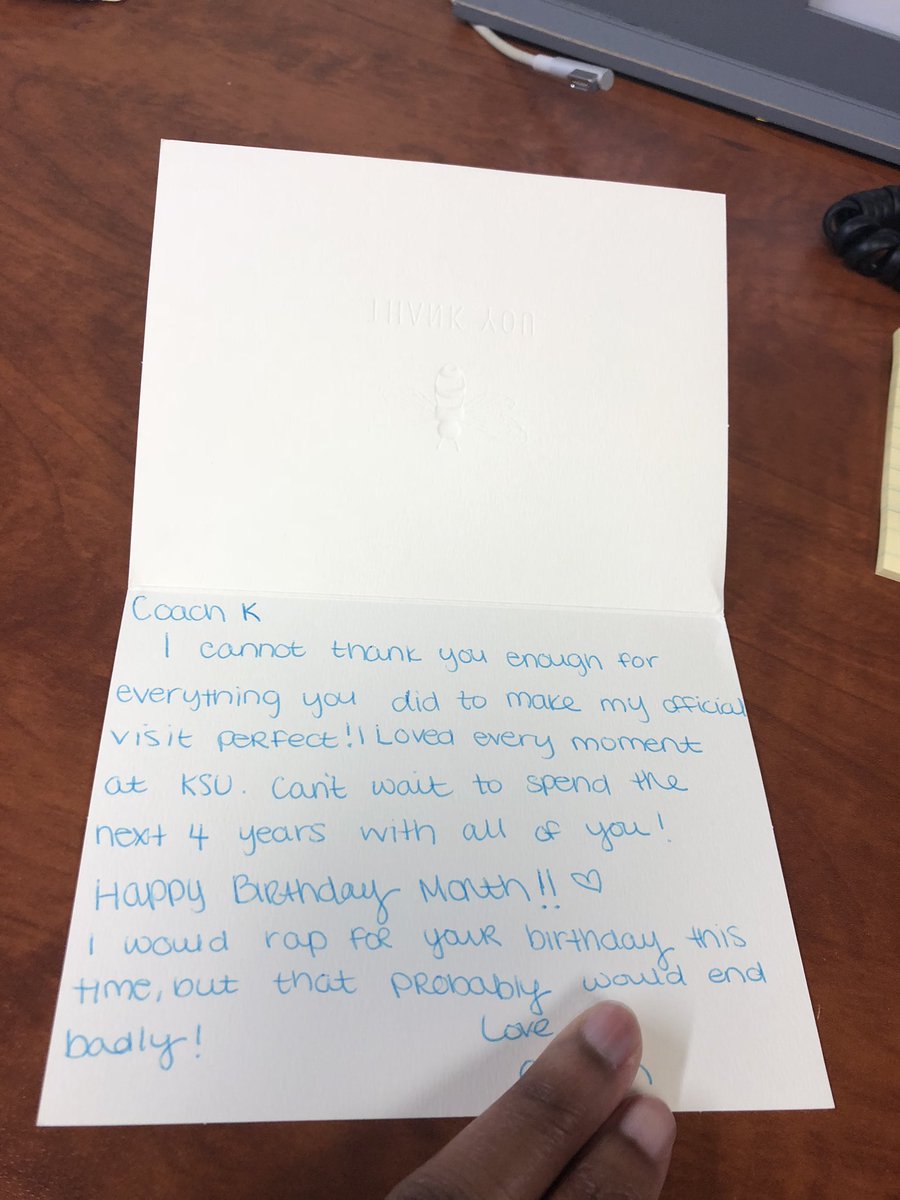 THANK YOU
Coach K
I cannot thank you enough for
everything you did to make my official
visit perfect! I Loved every moment
at KSU. Can't wait to spend the
next 4 years with all of you!
Happy Birthday Month!! ♡
I would rap for your birthday this
time, but that probably would end
badly!
Love